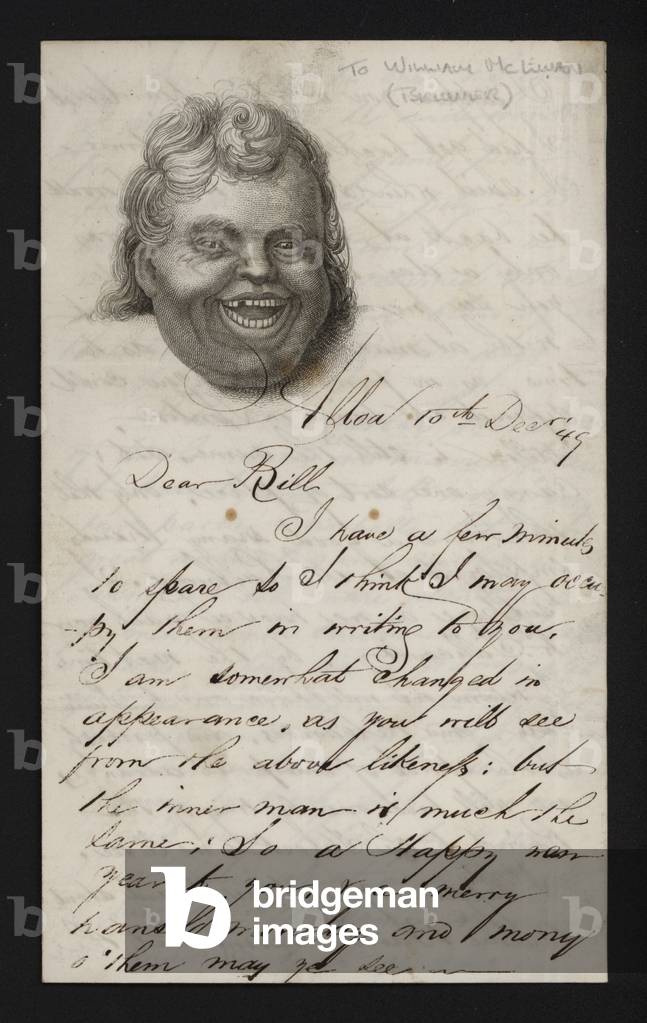 To William
Alloa 10th Decr '49
Dear Bill
I have a few minutes
to spare so I think I may occu-
-py them in writing to you.
I am somewhat changed in
appearance, as you will see
from the above likeness: but
the inner man is much the
same; So a Happy new
year to you & a merry
hansel monday and mony
o' them may ye see
bridgeman
images